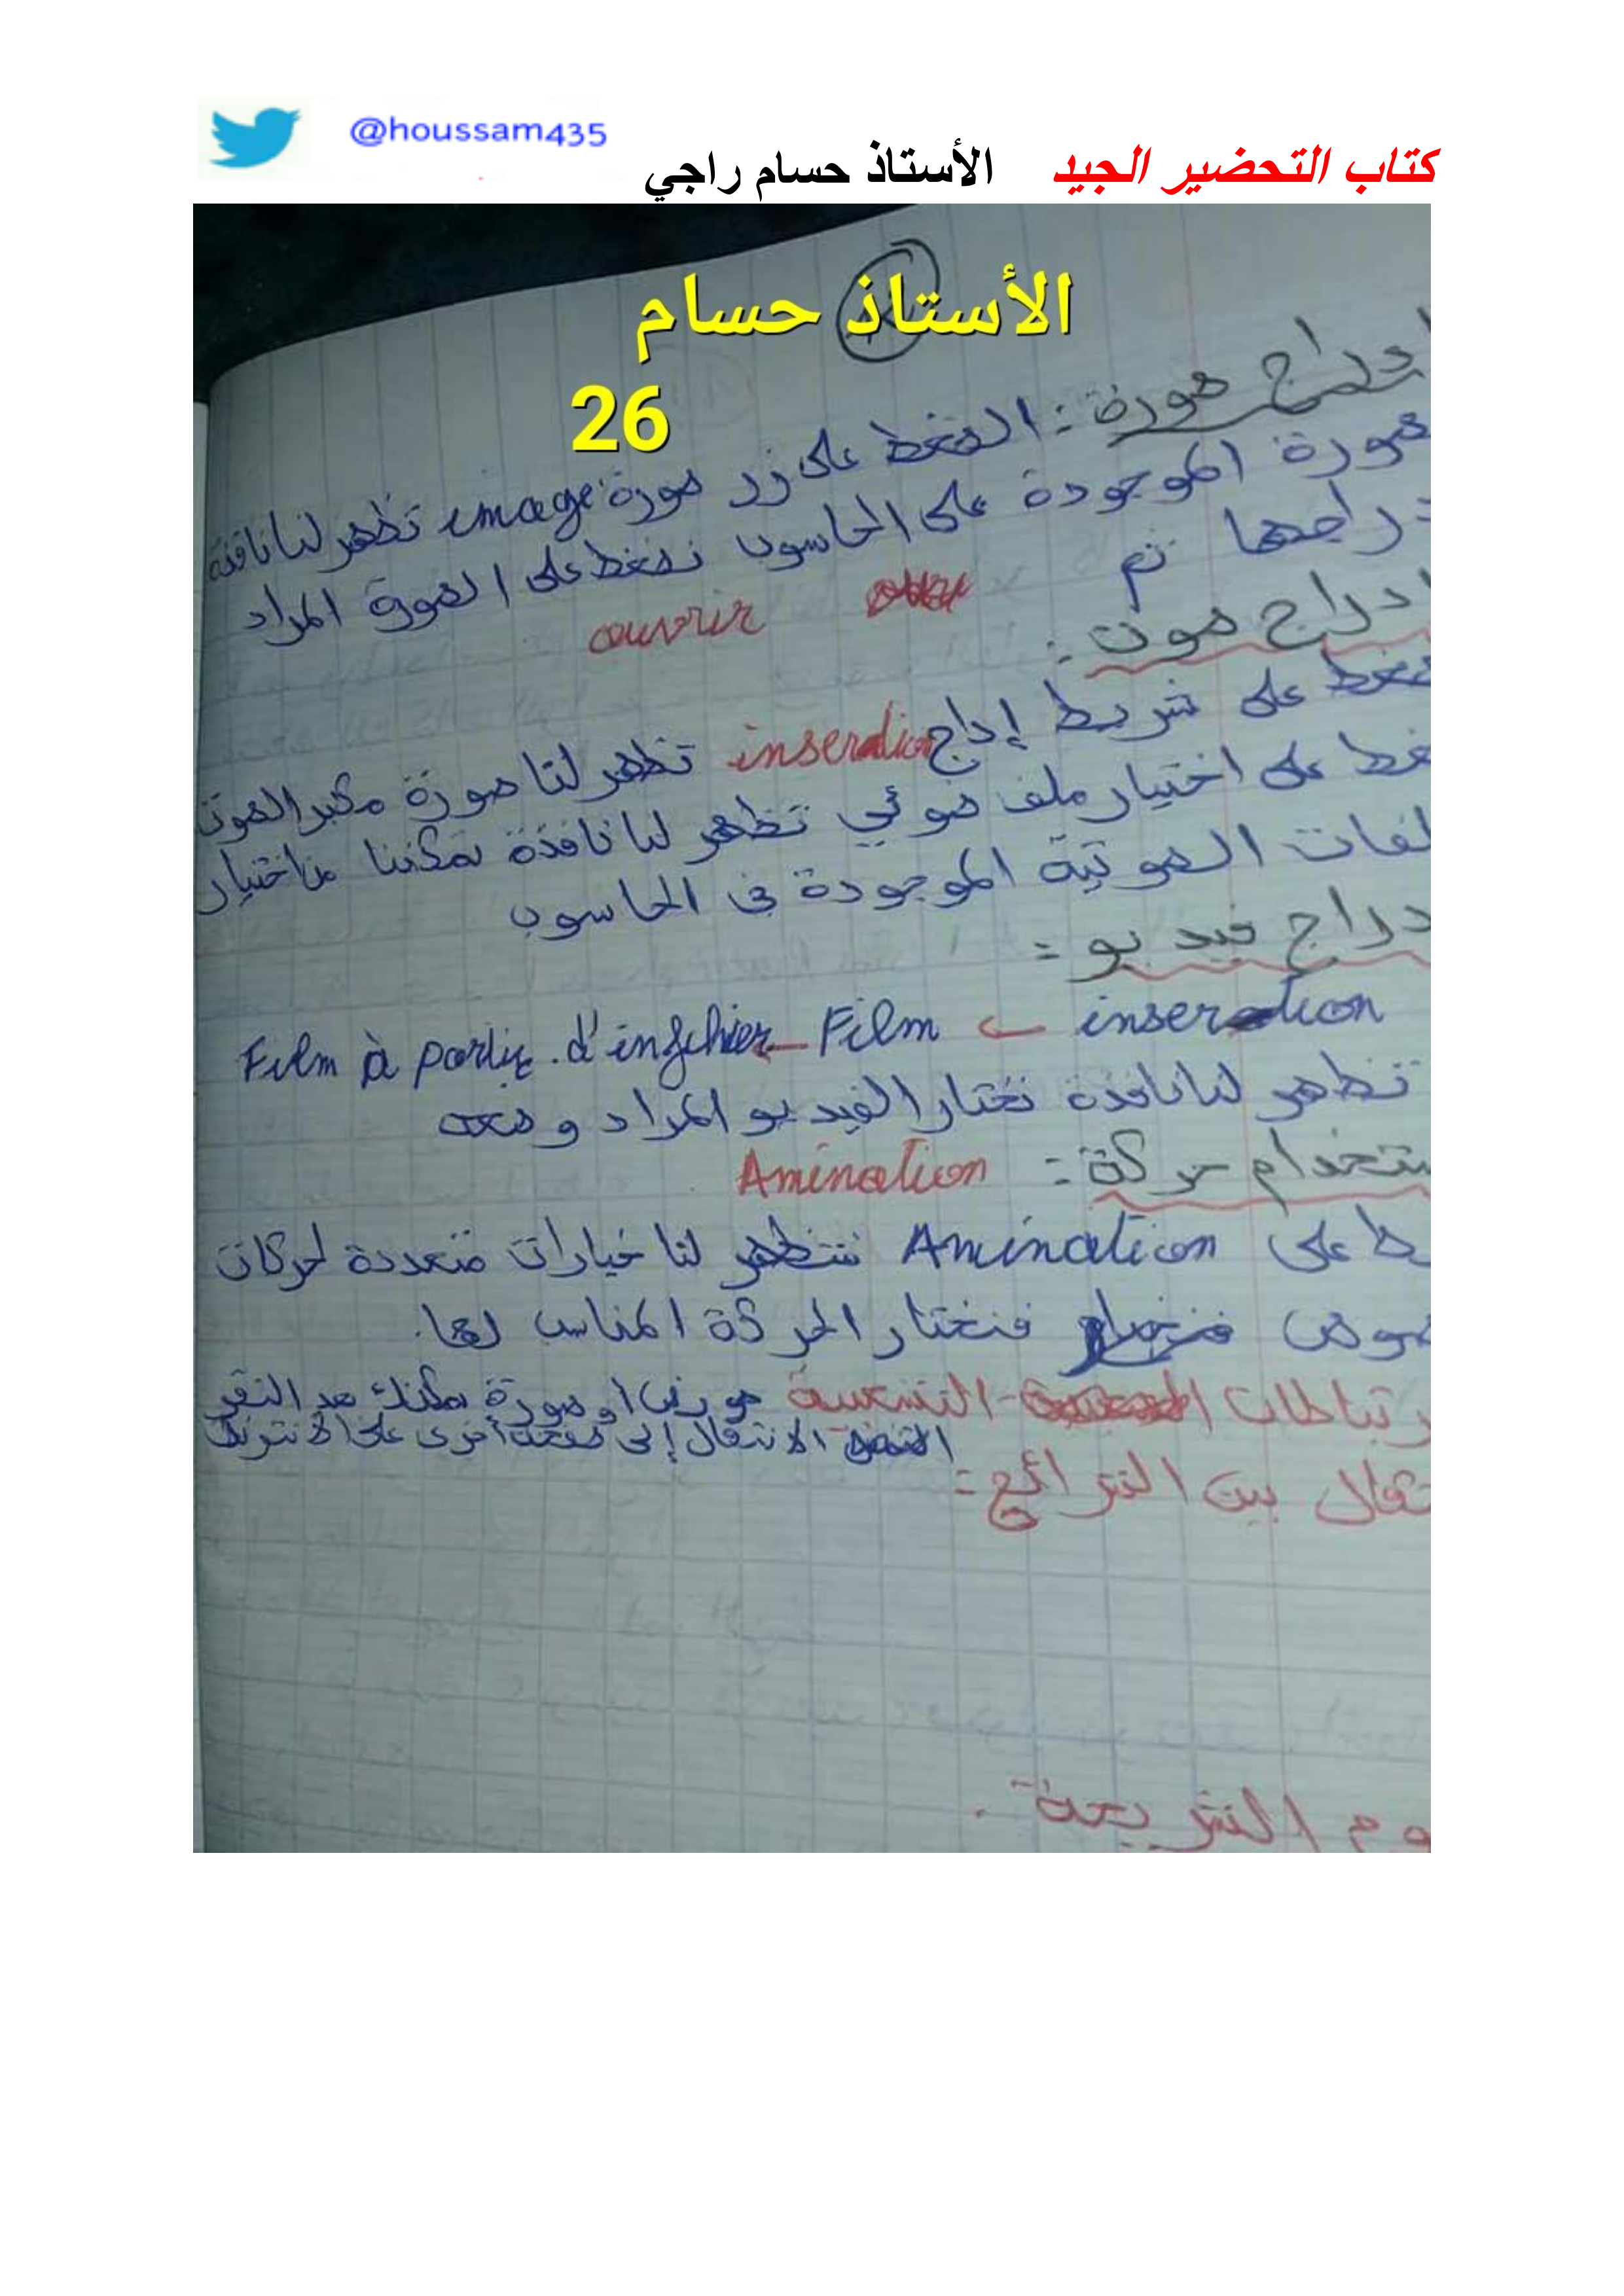 @houssam435
كتاب التحضير الجيد الأستاذ حسام راجي
الأستاذ حسام
26
إدراج صورة : الضغط على زر صورة image تظهر لنا نافذة
صورة الموجودة على الحاسوب نضغط على الصورة المراد
دراجها ثم couvrir
ادراج صوت :
ضغط على شريط إداج inserdion تظهر لنا صورة مكبر الصوت
غط على اختيار ملف صوتي تظهر لنا نافذة تمكننا من اختيار
لفات الصوتية الموجودة في الحاسوب
دراج فيديو :
inserdion ← Film ← Film à partir d'infichier
تظهر لنا نافذة نختار الفيديو المراد وضعه
ستخدام حركة : Amination
ط على Amination ستظهر لنا خيارات متعددة لحركات
صوص فنختار الحركة المناسب لها.
رتباطات التشعبية هو نص او صورة يمكنك عند النقر
الانتقال إلى صفحة أخرى على الانترنت
تقال بين الشرائح :
وم الشريحة .